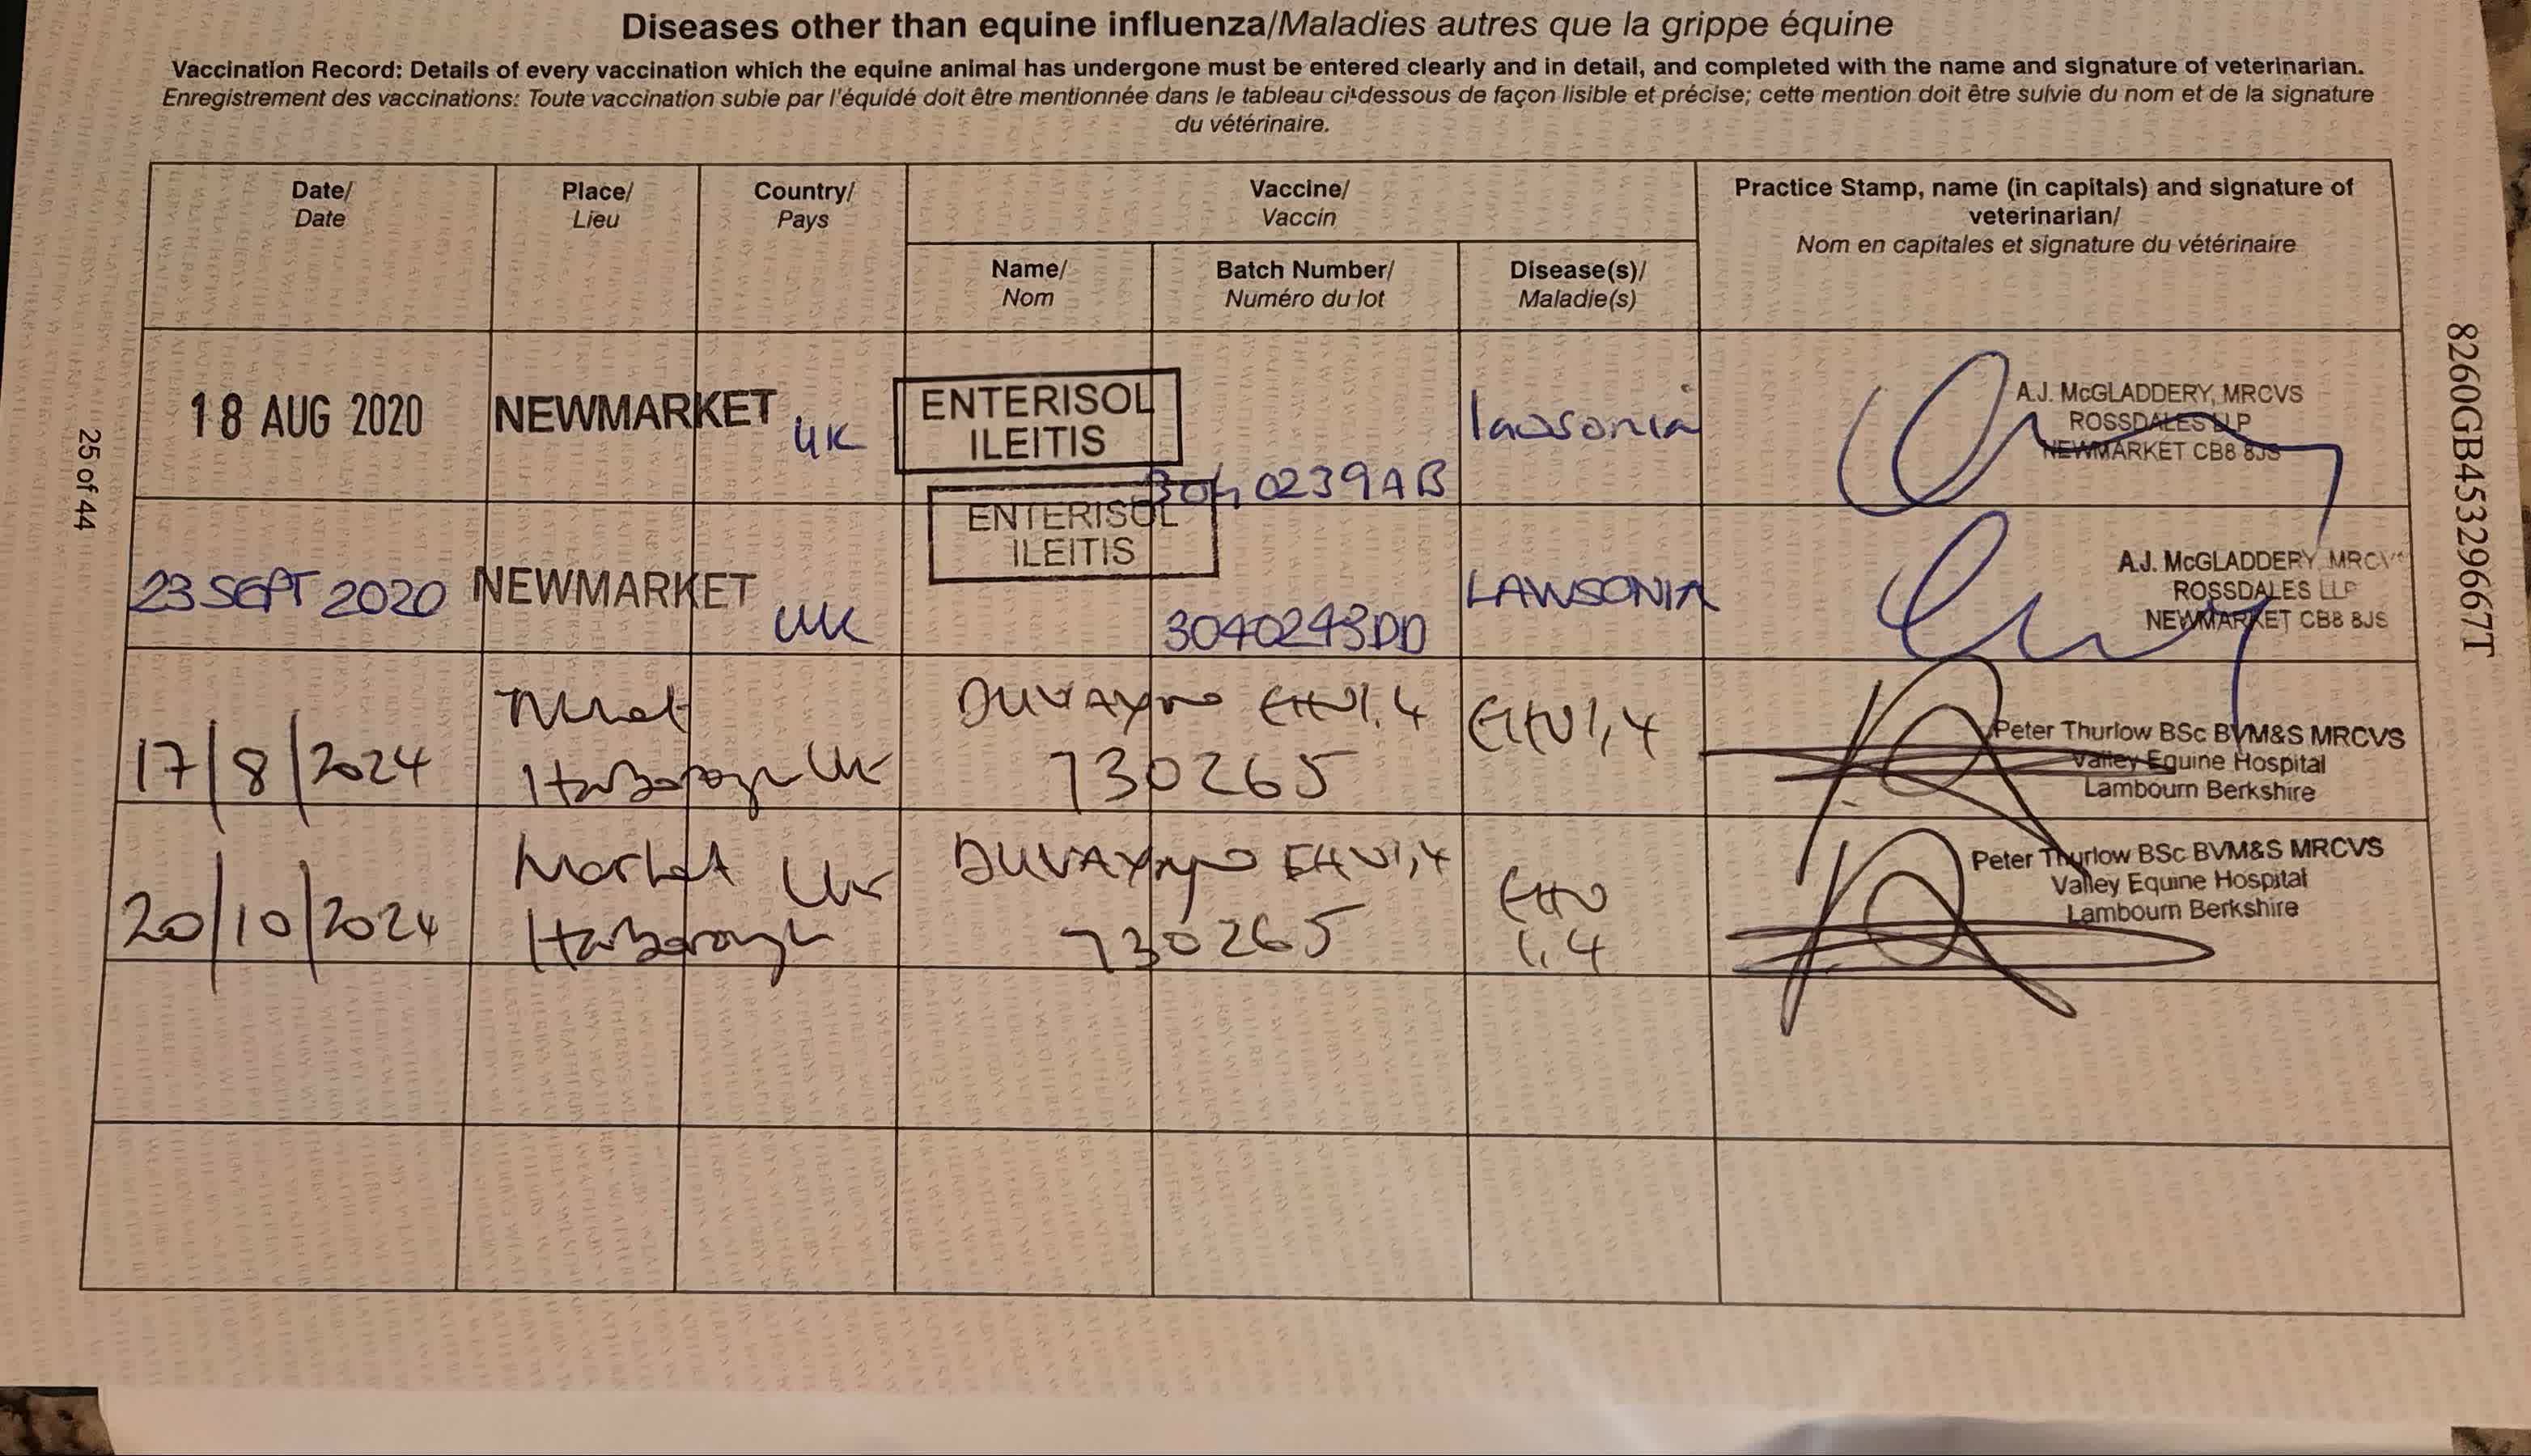 Diseases other than equine influenza/Maladies autres que la grippe équine
Vaccination Record: Details of every vaccination which the equine animal has undergone must be entered clearly and in detail, and completed with the name and signature of veterinarian.
Enregistrement des vaccinations: Toute vaccination subie par l'équidé doit être mentionnée dans le tableau ci-dessous de façon lisible et précise; cette mention doit être suivie du nom et de la signature
du vétérinaire.
Date/
Date
Place/
Lieu
Country/
Pays
Vaccine/
Vaccin
Name/
Nom
Batch Number/
Numéro du lot
Disease(s)/
Maladie(s)
Practice Stamp, name (in capitals) and signature of
veterinarian/
Nom en capitales et signature du vétérinaire
18 AUG 2020
NEWMARKET
UK
ENTERISOL
ILEITIS
3040239AB
lawsonia
A.J. McGLADDERY, MRCVS
ROSSDALES LLP
NEWMARKET CB8 8JS
23 SEPT 2020
NEWMARKET
UK
ENTERISOL
ILEITIS
3040243DD
LAWSONIA
A.J. McGLADDERY, MRCVS
ROSSDALES LLP
NEWMARKET CB8 8JS
17/8/2024
Harborough
UK
DUVAXYN EHV1,4
730265
EHV1,4
Peter Thurlow BSc BVM&S MRCVS
Valley Equine Hospital
Lambourn Berkshire
20/10/2024
Market
Harborough
UK
DUVAXYN EHV1,4
730265
EHV
1,4
Peter Thurlow BSc BVM&S MRCVS
Valley Equine Hospital
Lambourn Berkshire
25 of 44
8260GB45329667T